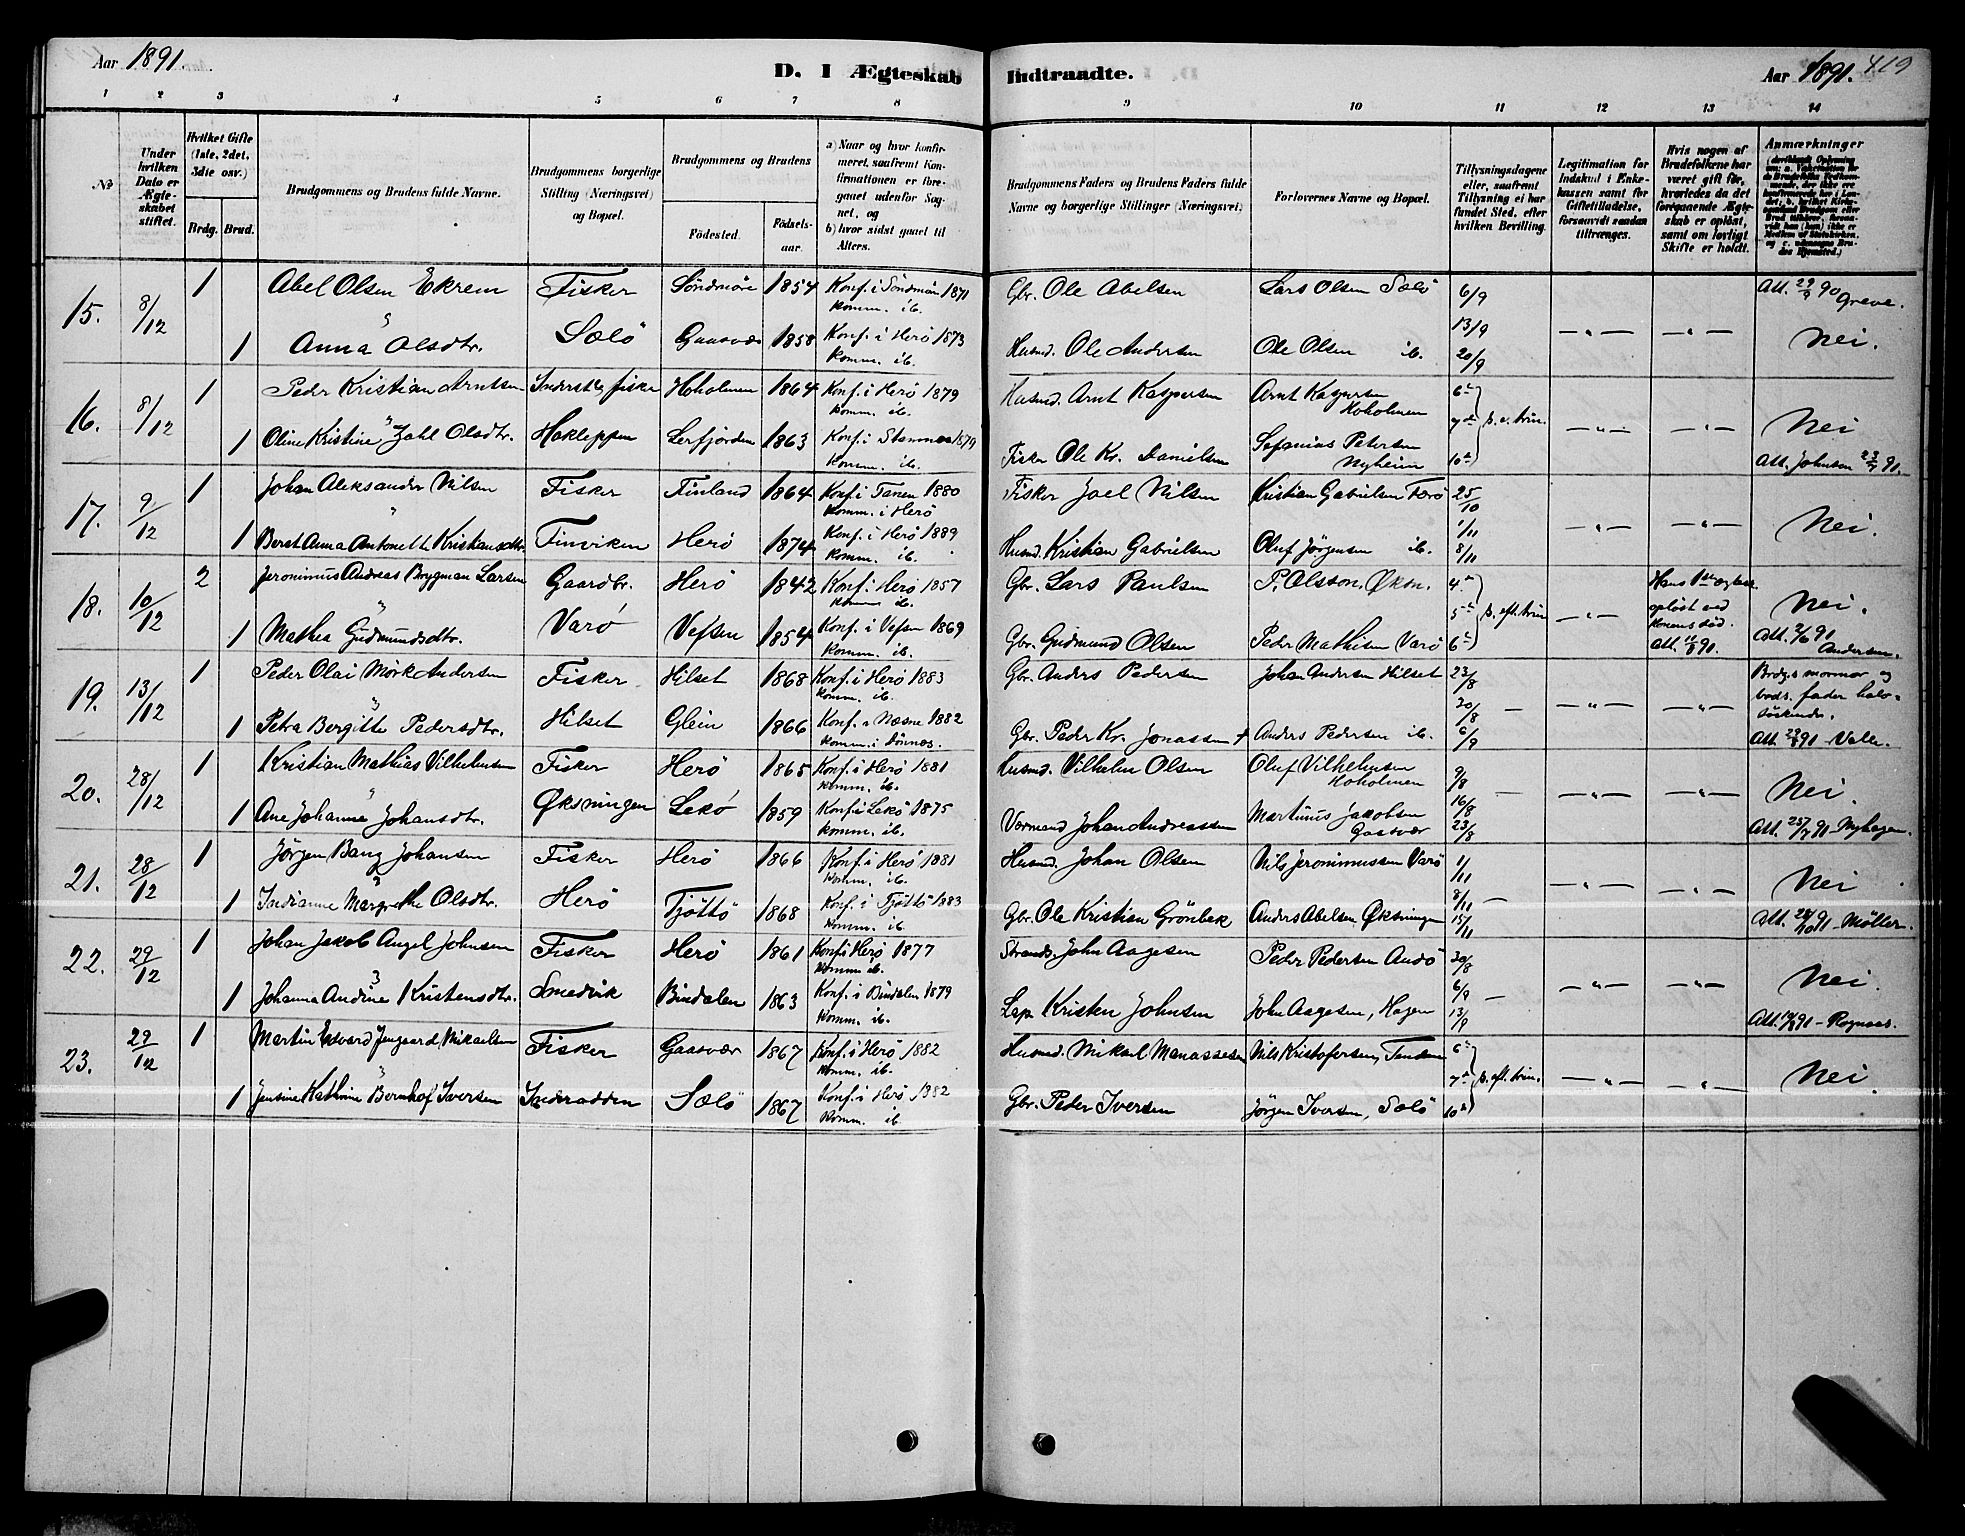 Aar 1891.
D. I Ægteskab Indtraadte.
Aar 1891. 419
1 2 3 4 5 6 7 8 9 10 11 12 13 14
No
Under hvilken Dato er Ægteskabet stiftet.
Hvilket Gifte (1ste, 2det, 3die osv.)
Brdg. Brud.
Brudgommens og Brudens fulde Navne.
Brudgommens borgerlige Stilling (Næringsvei) og Bopæl.
Brudgommens og Brudens
Fødested. Fødselsaar.
a) Naar og hvor konfirmeret, saafremt Konfirmationen er foregaaet udenfor Sognet, og
b) hvor sidst gaaet til Alters.
Brudgommens Faders og Brudens Faders fulde Navne og borgerlige Stillinger (Næringsvei)
Forlovernes Navne og Bopæl.
Tillysningsdagene eller, saafremt Tillysning ei har fundet Sted, efter hvilken Bevilling.
Legitimation for Indskud i Enkekassen samt for Giftetilladelse, forsaavidt saadan tiltrænges.
Hvis nogen af Brudefolkene har været gift før, hvorledes da det foregaaende Ægteskab er opløst, samt om lovligt Skifte er holdt.
Anmærkninger
15. 8/12 1 Abel Olsen Ekrem Fisker Søndmøre 1854 Konf. i Søndmør 1871 Komm. ib. Gbr. Ole Abelsen Lars Olsen Sælö 6/9 Att. 29/9 90 Greve.
1 Anna Olsdtr. Sælö Gaasvær 1858 Konf. i Herö 1873 Komm. ib. Husmd. Ole Andersen Ole Olsen ib. 13/9 20/9 — " — — " — Nei.
16. 8/12 1 Peder Kristian Arntsen Inderst & fisker Hoholmen 1864 Konf. i Herö 1879 Komm. ib. Husmd. Arnt Kaspersen Arnt Kaspersen Hoholmen 6te
1 Oline Kristine Zahl Olsdtr. Hakleppen Lerfjorden 1863 Konf. i Stamnes 1879 Komm. ib. Fisker Ole Kr. Danielsen Sefanias Petersen Nyheim 7de 10de p. e. trin. — " — — " — Nei Att. Johnson 23/9 91.
17. 9/12 1 Johan Aleksander Nilsen Fisker Finland 1864 Konf. i Tanen 1880 Komm. i Herö Fisker Joel Nilsen Kristian Gabrielsen Færö 25/10
1 Beret Anna Antonette Kristiansdtr. Finviken Herö 1874 Konf. i Herö 1889 Komm. ib. Husmd. Kristian Gabrielsen Oluf Jørgensen ib. 1/11 8/11 — " — — " — Nei.
18. 10/12 2 Jeronimus Andreas Brygman Larsen Gaardbr. Herö 1842 Konf. i Herö 1857 Komm. ib. Gbr. Lars Paulsen P. Olsson, Øksn. 4de Hans 1ste ægtesk. opløst ved konens død. Att. 10/8 91.
1 Mathea Gudmundsdtr. Varö Vefsen 1854 Konf. i Vefsen 1869 Komm. ib. Gbr. Gudmund Olsen Peder Mathisen Varö 5te 6te s. eft. trin. — " — Nei. Att. 2/6 91 Andersen.
19. 13/12 1 Peder Olai Mörk Andersen Fisker Hilset 1868 Konf. i Herö 1883 Komm. ib. Gbr. Anders Pedersen Johan Andersen Hilset 23/8 Brdg.s mormor og bruds. fader halvsøskende.
1 Petra Bergitte Pedersdtr. Hilset Glein 1866 Konf. i Næsne 1882 Komm. i Dønnes. Gbr. Peder Kr. Jonassen + Anders Pedersen ib. 30/8 6/9 — — " — — " — Att. 23/8 91 Valle.
20. 28/12 1 Kristian Mathias Vilhelmsen Fisker Herö 1865 Konf. i Herö 1881 Komm. ib. Husmd. Vilhelm Olsen Oluf Vilhelmsen Hoholmen 9/8
1 Ane Johanne Johansdtr. Øksningen Lekö 1859 Konf. i Lekö 1875 Komm. ib. Vormand Johan Andreassen Martinus Jakobsen Gaasvær 16/8 23/8 — — " — — " — Nei. Att. 25/7 91 Nyhagen.
21. 28/12 1 Jörgen Bang Johansen Fisker Herö 1866 Konf. i Herö 1881 Komm. ib. Husmd. Johan Olsen Nils Jeronimussen Varö 1/11
1 Indianne Margrethe Olsdtr. Herö Tjöttö 1868 Konf. i Tjöttö 1883 Komm. ib. Gbr. Ole Kristian Grönbek Anders Abelsen Øksningen 8/11 15/11 — — " — — " — Nei Att. 24/10 91 Möller.
22. 29/12 1 Johan Jakob Angel Johnsen Fisker Herö 1861 Konf. i Herö 1877 Komm. ib. Strands. John Aagesen Peder Pedersen Andö 30/8
1 Johanna Andrine Kristensdtr. Smedvik Bindalen 1863 Konf. i Bindalen 1879 Komm. ib. Lap Kristen Johnsen John Aagesen, Hagen 6/9 13/9 — — " — — " — Nei. Att. 14/8 91 – Rognaas.
23. 29/12 1 Martin Edvard Jengaard Mikaelsen Fisker Gaasvær 1867 Konf. i Herö 1882 Komm. ib. Husmd. Mikael Manassesen Nils Kristofersen, Tenden 6te
1 Jensine Kathrine Bernhof Iversen Inderødden Sælö 1867 Konf. i Herö 1882 Komm. ib. Gbr. Peder Iversen Jörgen Iversen, Sælö 7de 10de s. eft. trin. — " — — " — Nei.